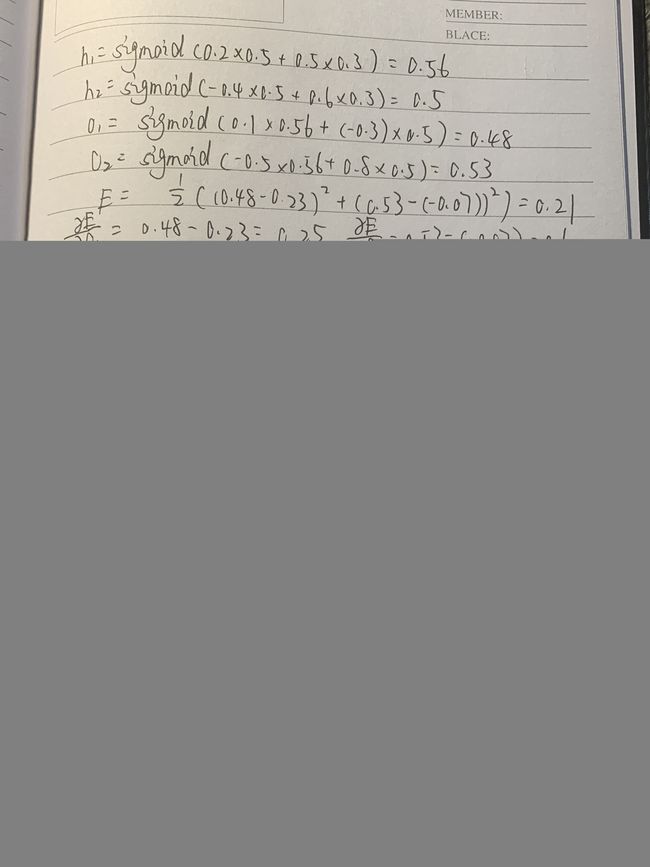 MEMBER:
BLACE:
h₁ = sigmoid (0.2 × 0.5 + 0.5 × 0.3) = 0.56
h₂ = sigmoid (-0.4 × 0.5 + 0.6 × 0.3) = 0.5
O₁ = sigmoid (0.1 × 0.56 + (-0.3) × 0.5) = 0.48
O₂ = sigmoid (-0.5 × 0.56 + 0.8 × 0.5) = 0.53
E = 1/2 ((0.48 - 0.23)² + (0.53 - (-0.07))²) = 0.21
= 0.48 - 0.23 = 0.25